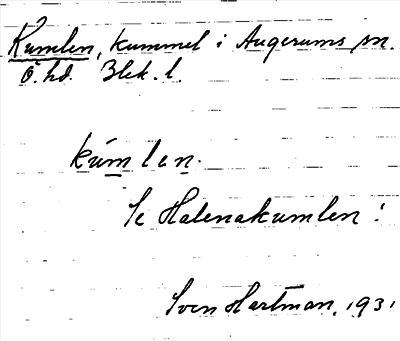 Kumlen, kummel i Augerums sn.
Ö. hd. Blek. l.
kúmlen.
Se Halenakumlen!
Sven Hartman, 1931